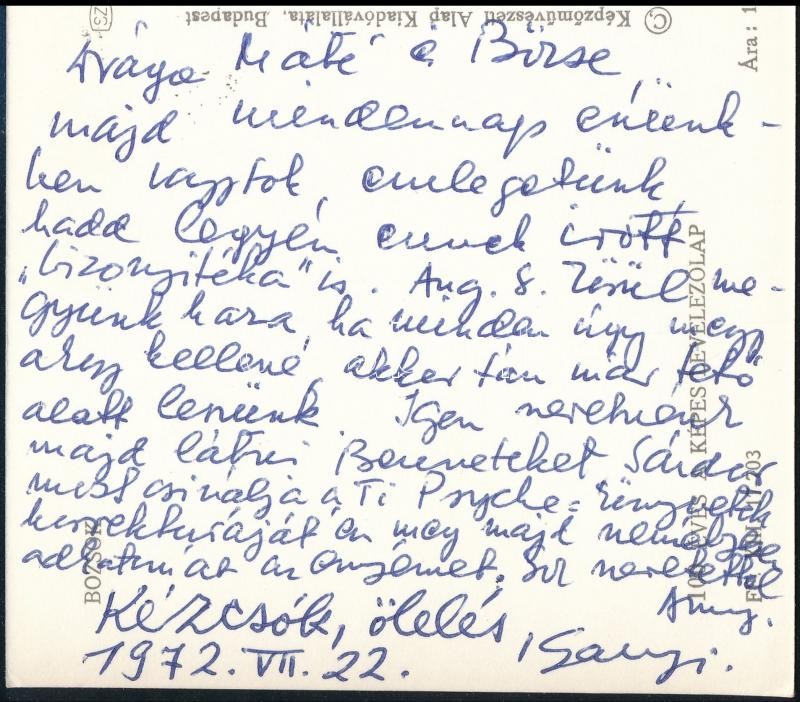 Képzőművészeti Alap Kiadóvállalata, Budapest
Ára: 1
SZ
Drága Máté és Börse,
majd mindennap eszünk-
ben vagytok, emlegetünk,
hadd legyen ennek írott
„bizonyítéka" is. Aug. 8. körül me-
gyünk haza, ha minden úgy megy
ahogy kellene, akkor tán már tető
alatt leszünk. Igen szeretnénk
majd látni Benneteket. Sándor
most csinálja a Ti Psyche-könyvetek
korrekturáját én meg majd
az enyémet. Sok szeretettel
Kézcsók, ölelés
1972. VII. 22.
BOZSOK
100 ÉVES A KÉPES LEVELEZŐLAP
203